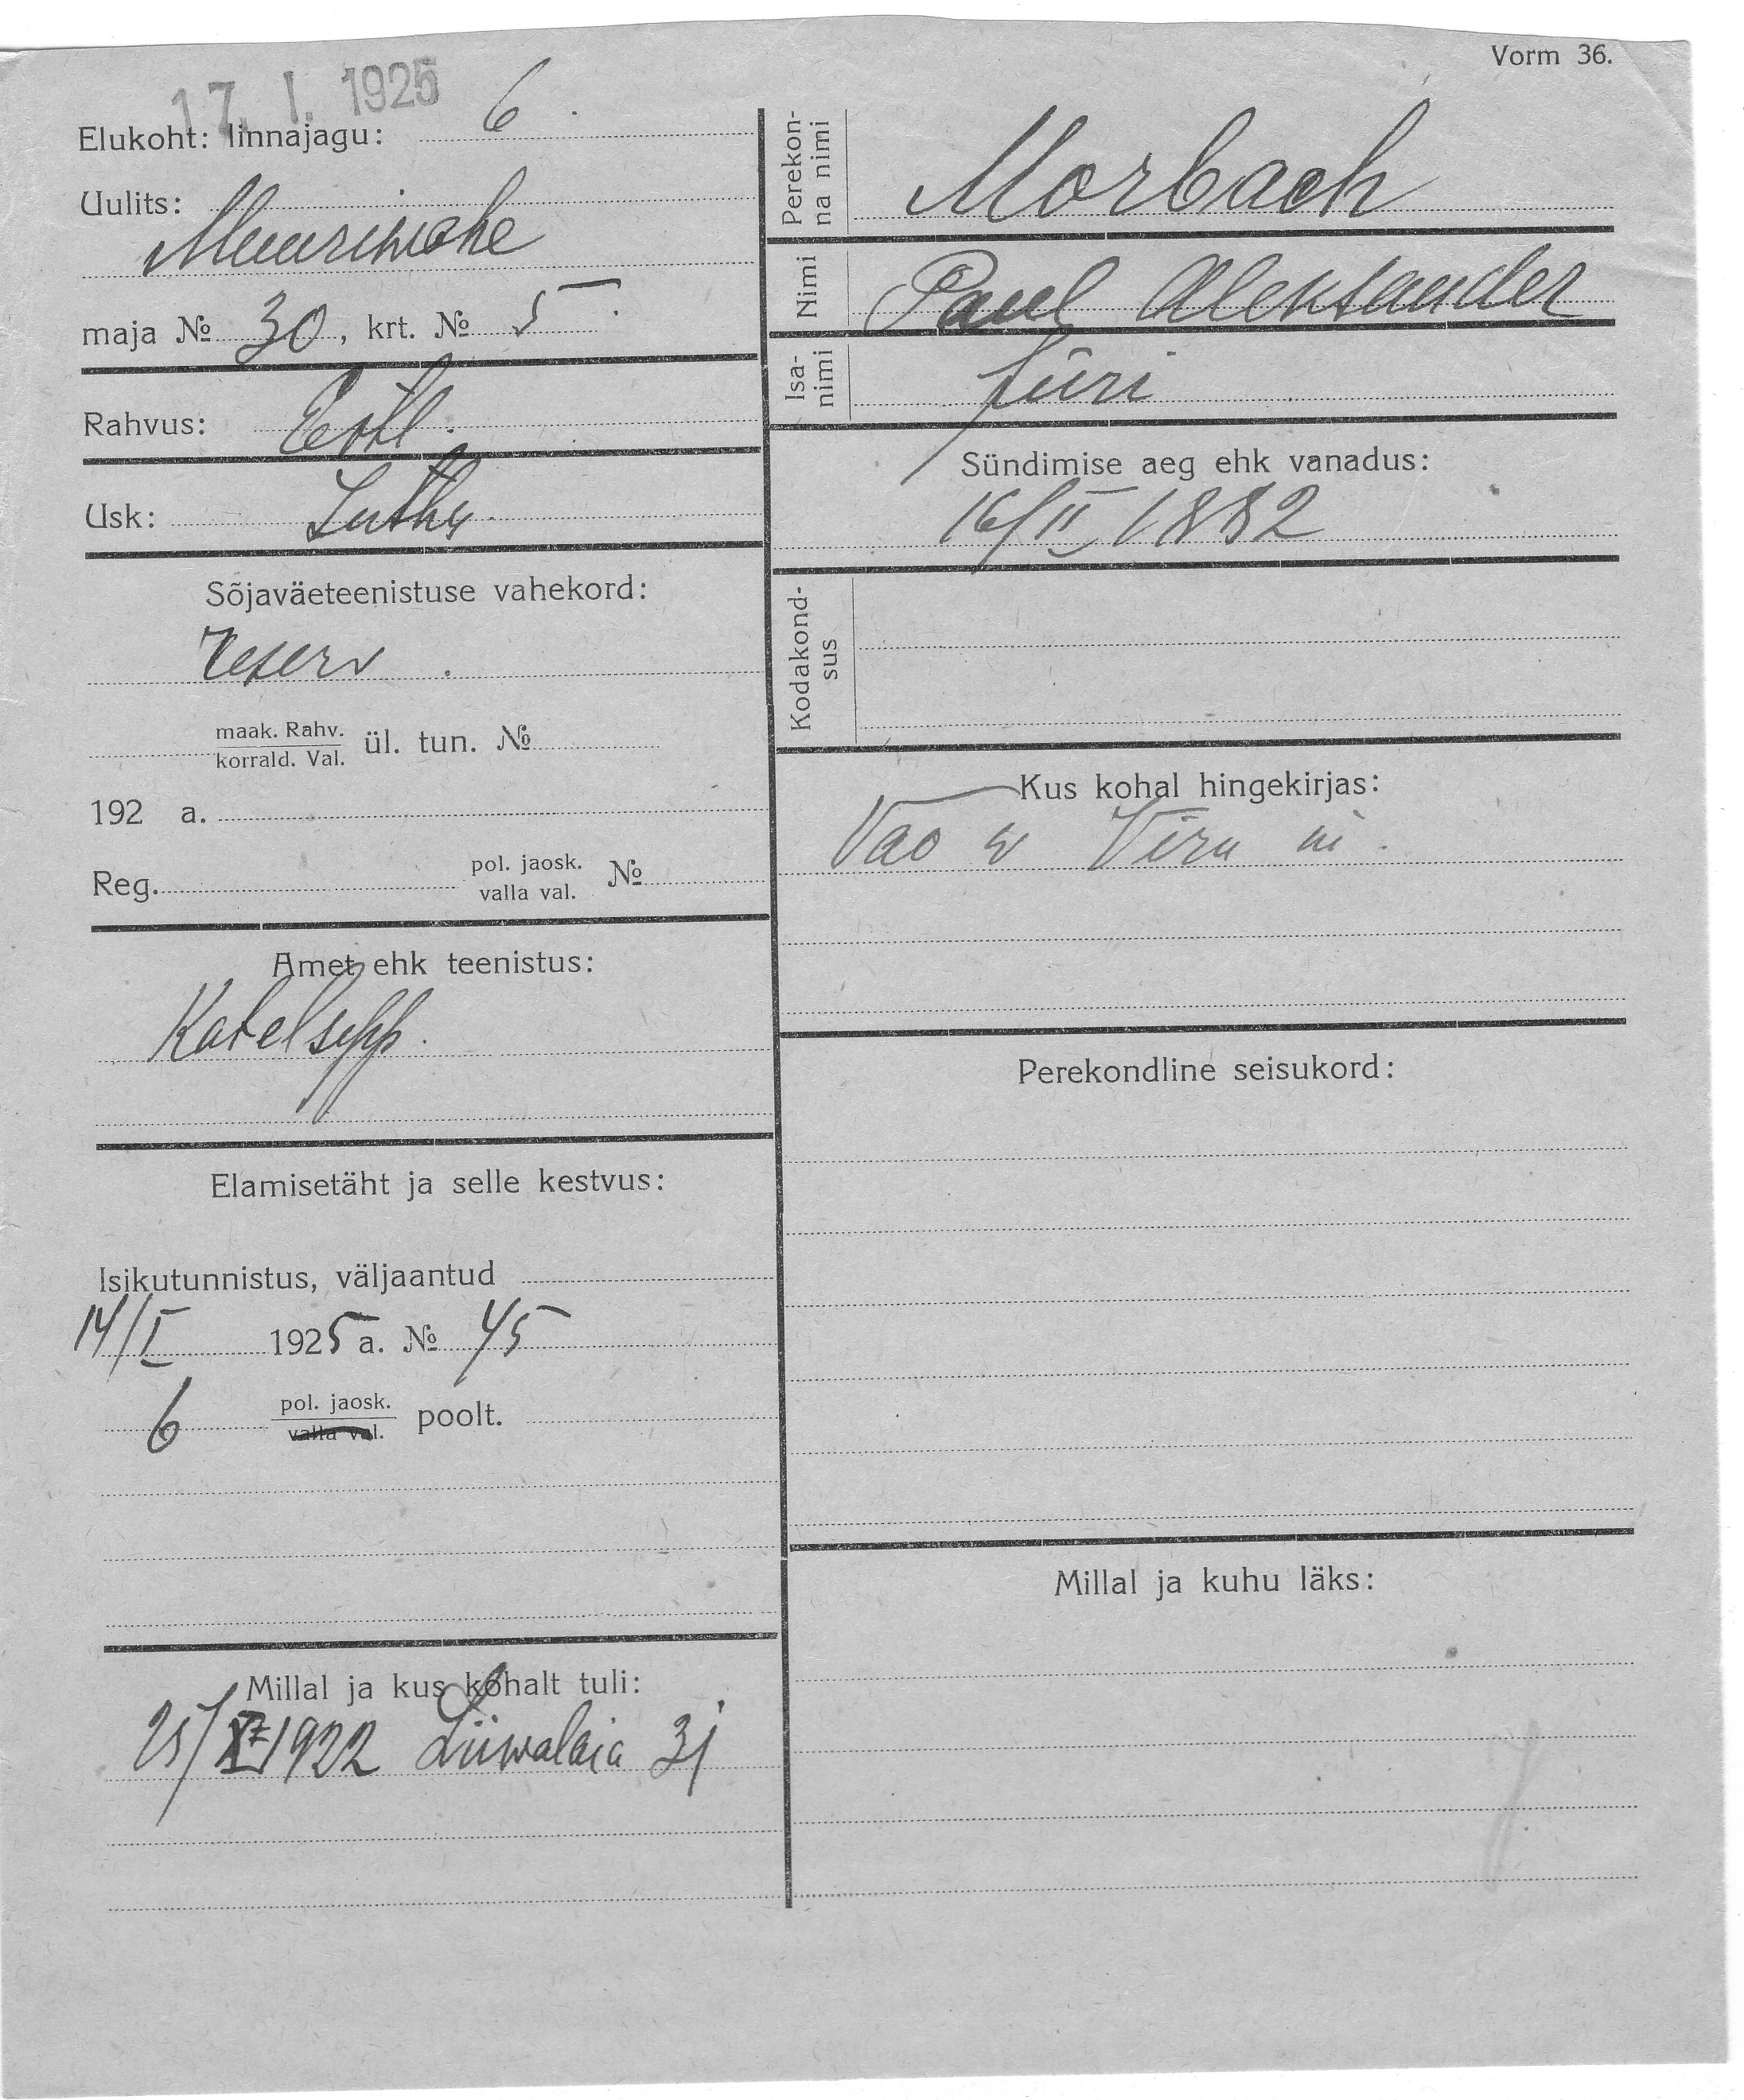 Vorm 36.
17. I. 1925
Elukoht: linnajagu: 6.
Uulits:
Muuriwahe
maja № 30, krt. № 5.
Rahvus: Estl.
Usk: Luthu
Sõjaväeteenistuse vahekord:
reserv.
maak. Rahv.
korrald. Val. ül. tun. №
192 a.
Reg. pol. jaosk.
valla val. №
Amet ehk teenistus:
Katelsepp.
Elamisetäht ja selle kestvus:
Isikutunnistus, väljaantud
14/I 1925 a. № 45
6 pol. jaosk.
valla val. poolt.
Millal ja kus kohalt tuli:
1922 Liiwalaia 31
Perekon-
na nimi Morbach
Nimi Paul Aleksander
Isa-
nimi Jüri
Sündimise aeg ehk vanadus:
16/II 1882
Kodakond-
sus
Kus kohal hingekirjas:
Vao w Viru m.
Perekondline seisukord:
Millal ja kuhu läks: